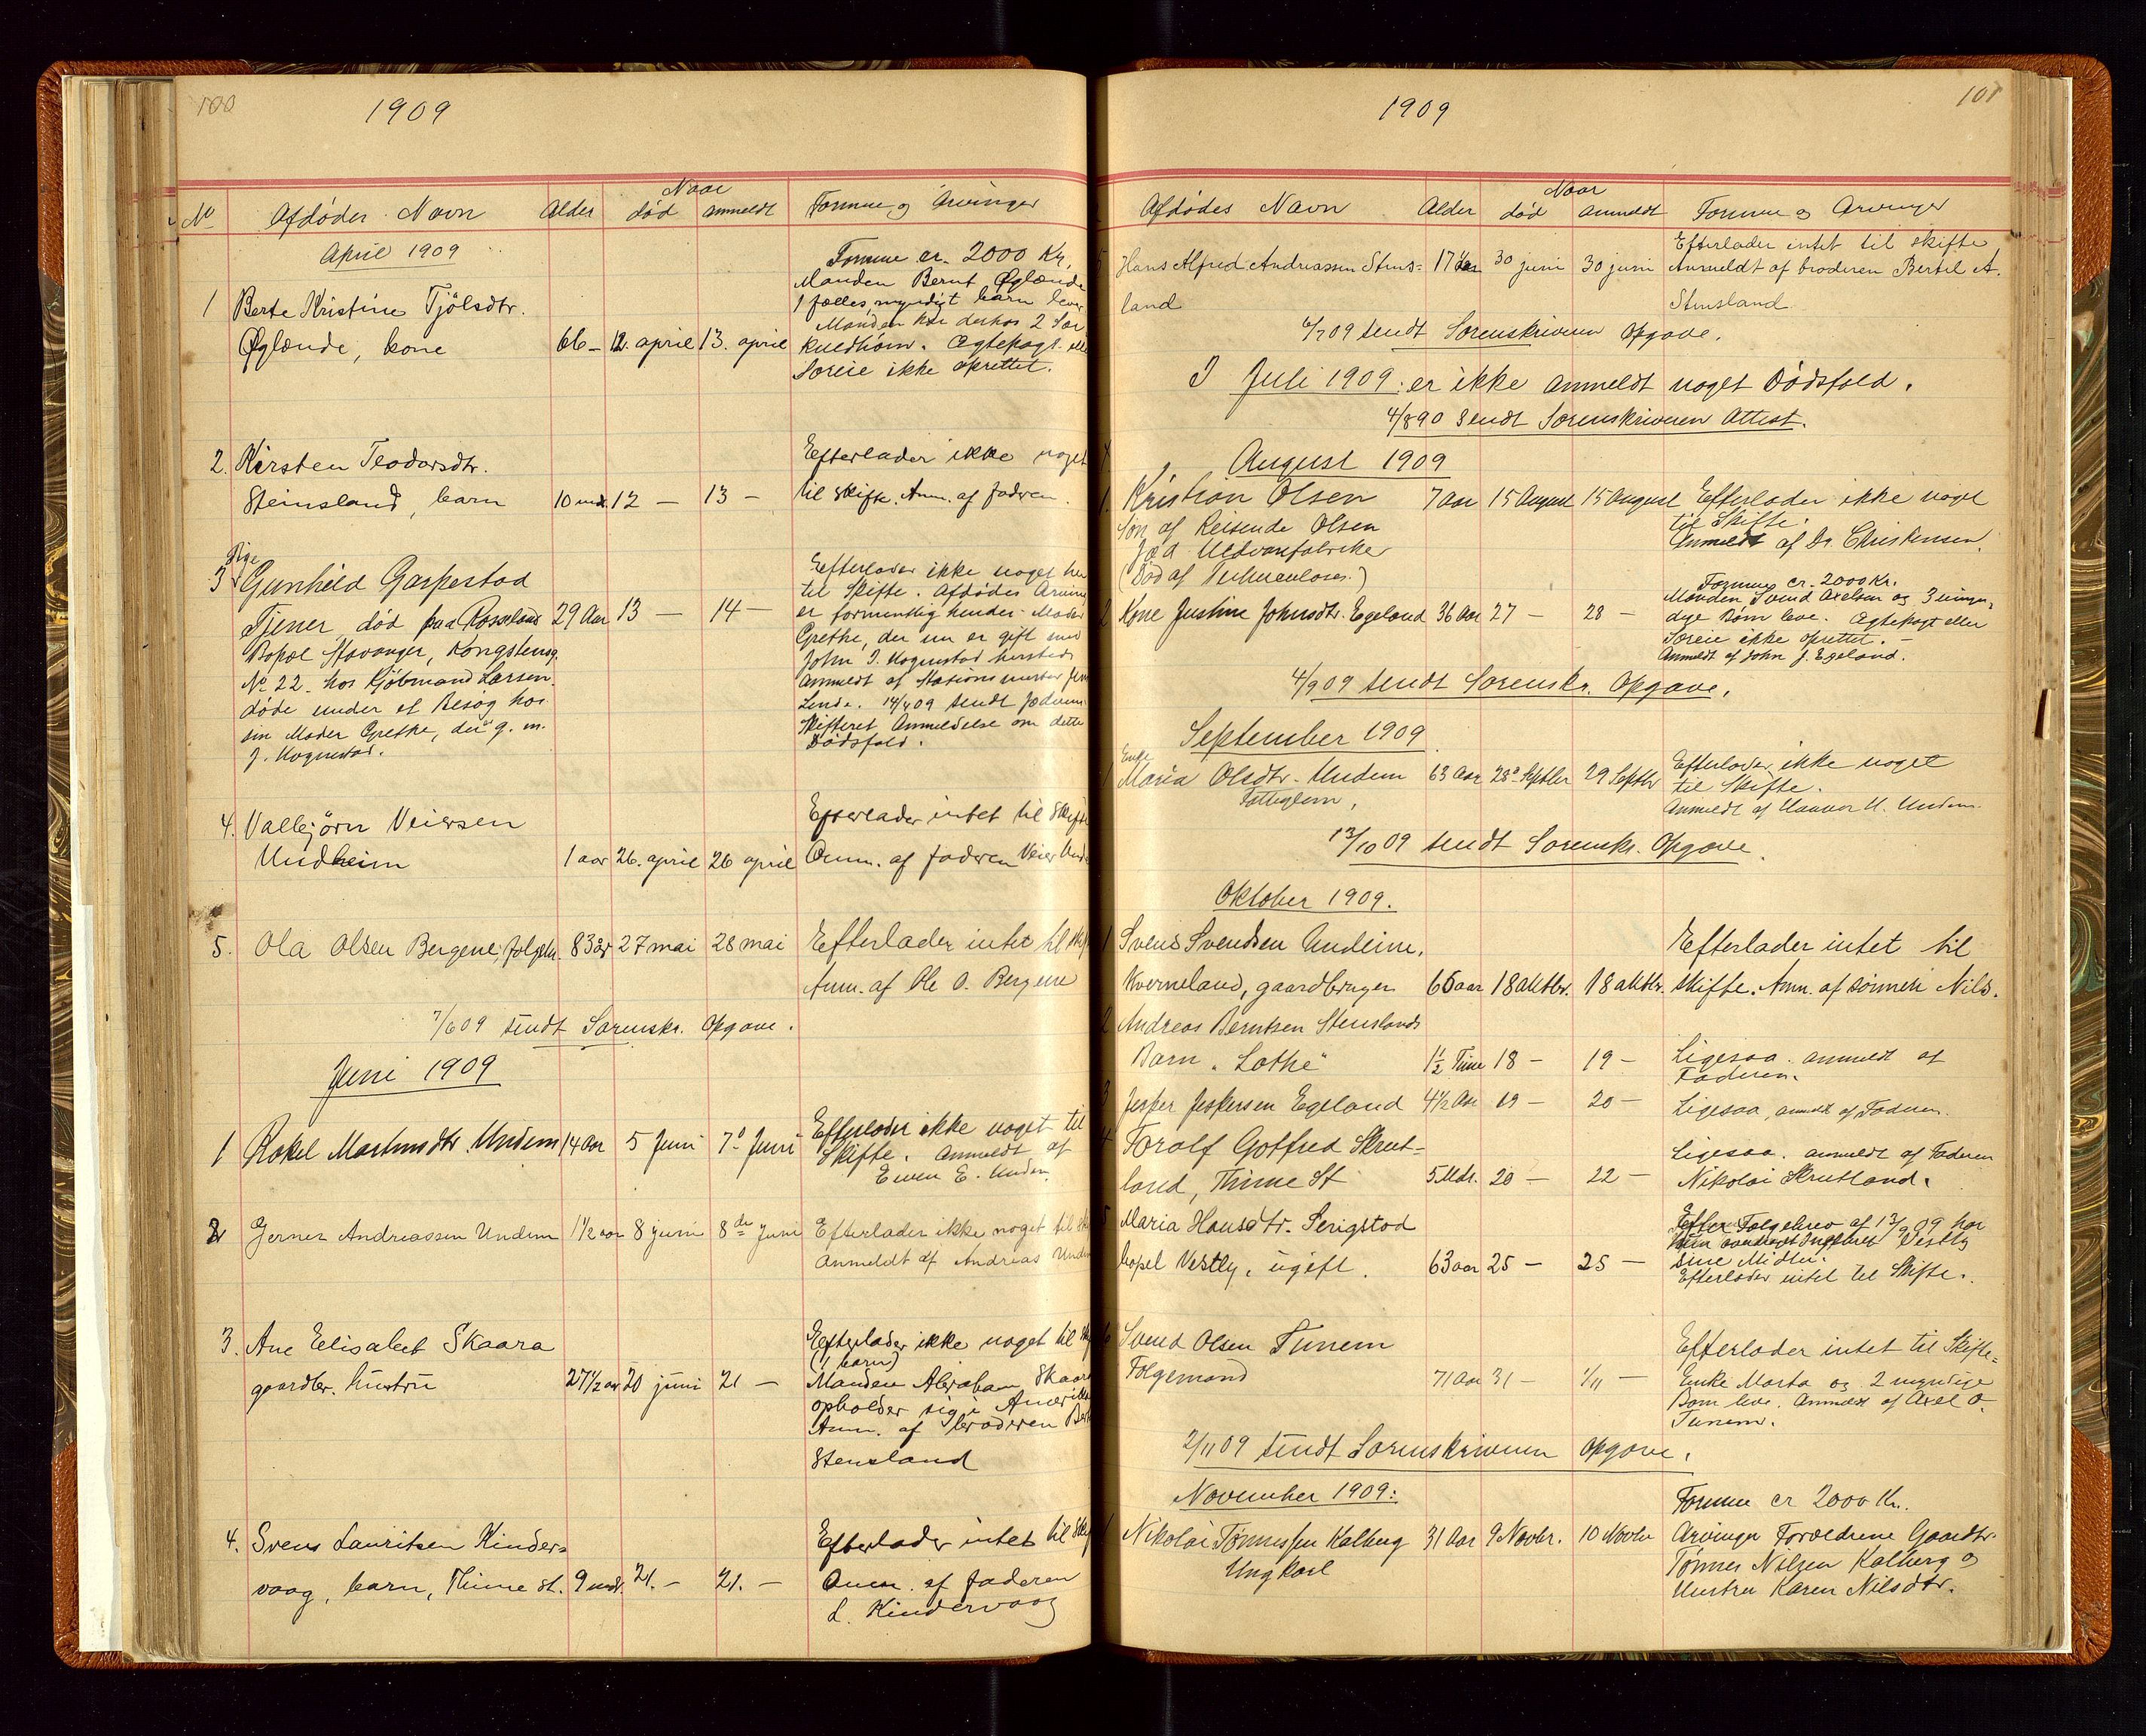 100
1909
No Afdødes Navn Alder Naar død anmeldt Formue og Arvinger
April 1909
Formue ca. 2000 Kr,
Manden Bernt Øglænde
1 fælles, myndigt barn lever
1 Berte Kristine Tjölsdtr.
Manden har derhos 2 Sær
Øglænde, kone 66 – 12. april 13. april
kuldbørn. Ægtepagt eller
Særeie ikke oprettet.
2. Kirsten Teodorsdtr. Efterlader ikke noget
Steinsland, barn 10 md. 12 – 13 – til skifte. Anm. af faderen.
Pige
3 Gunhild Gaspestad Efterlader ikke noget her
til Skifte. Afdødes Arving
Tjener død paa Rosseland 29 Aar 13 – 14 – er formentlig hendes Moder
Bopæl Stavanger, Kongstensg. Grethe, der nu er gift med
No 22 hos Kjöbmand Larsen. John J. Hognestad hersteds
døde under et Besøg hos anmeldt af Stationsmester
sin Moder Grethe, der g. m. Linde. 14/4 09 sendt Jæderens
J. Hognestad. Skifteret Anmeldelse om dette
Dødsfald.
4. Valbjörn Veiersen Efterlader intet til Skifte
Undheim 1 aar 26. april 26 april Anm. af faderen Veier
5. Ola Olsen Bergene, 83 år 27 mai 28 mai Efterlader intet til
Anm. af Ole O. Bergene
7/6 09 sendt Sorenskr. Opgave.
Juni 1909
1 Rakel Martinsdtr. Undem 14 Aar 5 Juni 7de Juni Efterlader ikke noget til
Skifte. Anmeldt af
Even E. Undem.
2 Jerner Andreassen Undem 1 1/2 aar 8 juni 8de juni Efterlader ikke noget til
anmeldt af Andreas
3. Ane Elisabet Skaara Efterlader ikke noget til
(1 barn)
gaardbr. hustru 27 1/2 aar 20 juni 21 – Manden Abraham
opholder sig i
Anm. af broderen
Stensland
4. Svens Lauritsen Kinder= Efterlader intet til
vaag, barn, Thime St. 9 mdr. 21. – 21. – Anm. af faderen
L. Kindervaag
101
1909
Afdødes Navn Alder Naar død anmeldt Formue og Arvinger
5 Hans Alfred Andreassen Stens= 17 aar 30 juni 30 juni Efterlader intet til skifte
land Anmeldt af broderen Bertil A.
Stensland
6/7 09 sendt Sorenskriveren Opgave.
I Juli 1909 er ikke anmeldt noget Dødsfald.
4/8 90 sendt Sorenskriveren Attest.
August 1909
1. Kristian Olsen 7 aar 15 August 15 August Efterlader ikke noget
Søn af Reisende Olsen til Skifte.
Anmeldt af Dr. Christensen.
(Død af Tuberculoses.)
Formue ca. 2000 Kr.
2 Kone Justine Johnsdtr. Egeland 36 Aar 27 – 28 – Manden Svend Axelsen og 3 umyn=
dige Børn leve. Ægtepagt eller
Særeie ikke oprettet. –
Anmeldt af John J. Egeland.
4/9 09 sendt Sorenskr. Opgave.
September 1909
Enke
1 Maria Olsdtr. Undem 63 Aar 28de Septbr 29 Septbr Efterlader ikke noget
Fattiglem, til Skifte.
Anmeldt af Undem.
13/10 09 sendt Sorenskr. Opgave.
Oktober 1909.
1 Svend Svendsen Undeim. Efterlader intet til
Kverneland, gaardbruger 65 aar 18 oktbr. 18 oktbr. skifte. Anm. af sønnen Nils.
2 Andreas Berntsen Stenslands
Barn "Lothe" 1 1/2 Time 18 – 19 – Ligesaa. anmeldt af
Faderen.
3 Jesper Jespersen Egeland 4 1/2 Aar 19 – 20 – Ligesaa, anmeldt af Faderen.
4 Torolf Gotfred Skret= Ligesaa. anmeldt af Faderen
land, Thime St 5 Mdr. 20 – 22 – Nikolai Skretland.
5 Maria Hansdtr. Serigstad Efter Følgebrev af 13/9 09 har
bopæl Vestly, ugift. 63 aar 25 – 25 – hun overdraget Ingebret Vestly
sine Midler.
Efterlader intet til Skifte.
6 Svend Olsen Tunem Efterlader intet til Skifte=
Folgemand 71 Aar 31 – 1/11 – Enke Marta og 2 myndige
Børn leve. Anmeldt af Axel O.
Tunem.
2/11 09 sendt Sorenskriveren Opgave.
November 1909: Formue ca 2000 Kr.
1 Nikolai Tønnessen Kalberg 31 Aar 9 Novbr. 10 Novbr Arvinger Forældrene Gaardbr.
Ungkarl Tønnes Nilsen Kalberg og
Hustru Karen Nilsdtr.